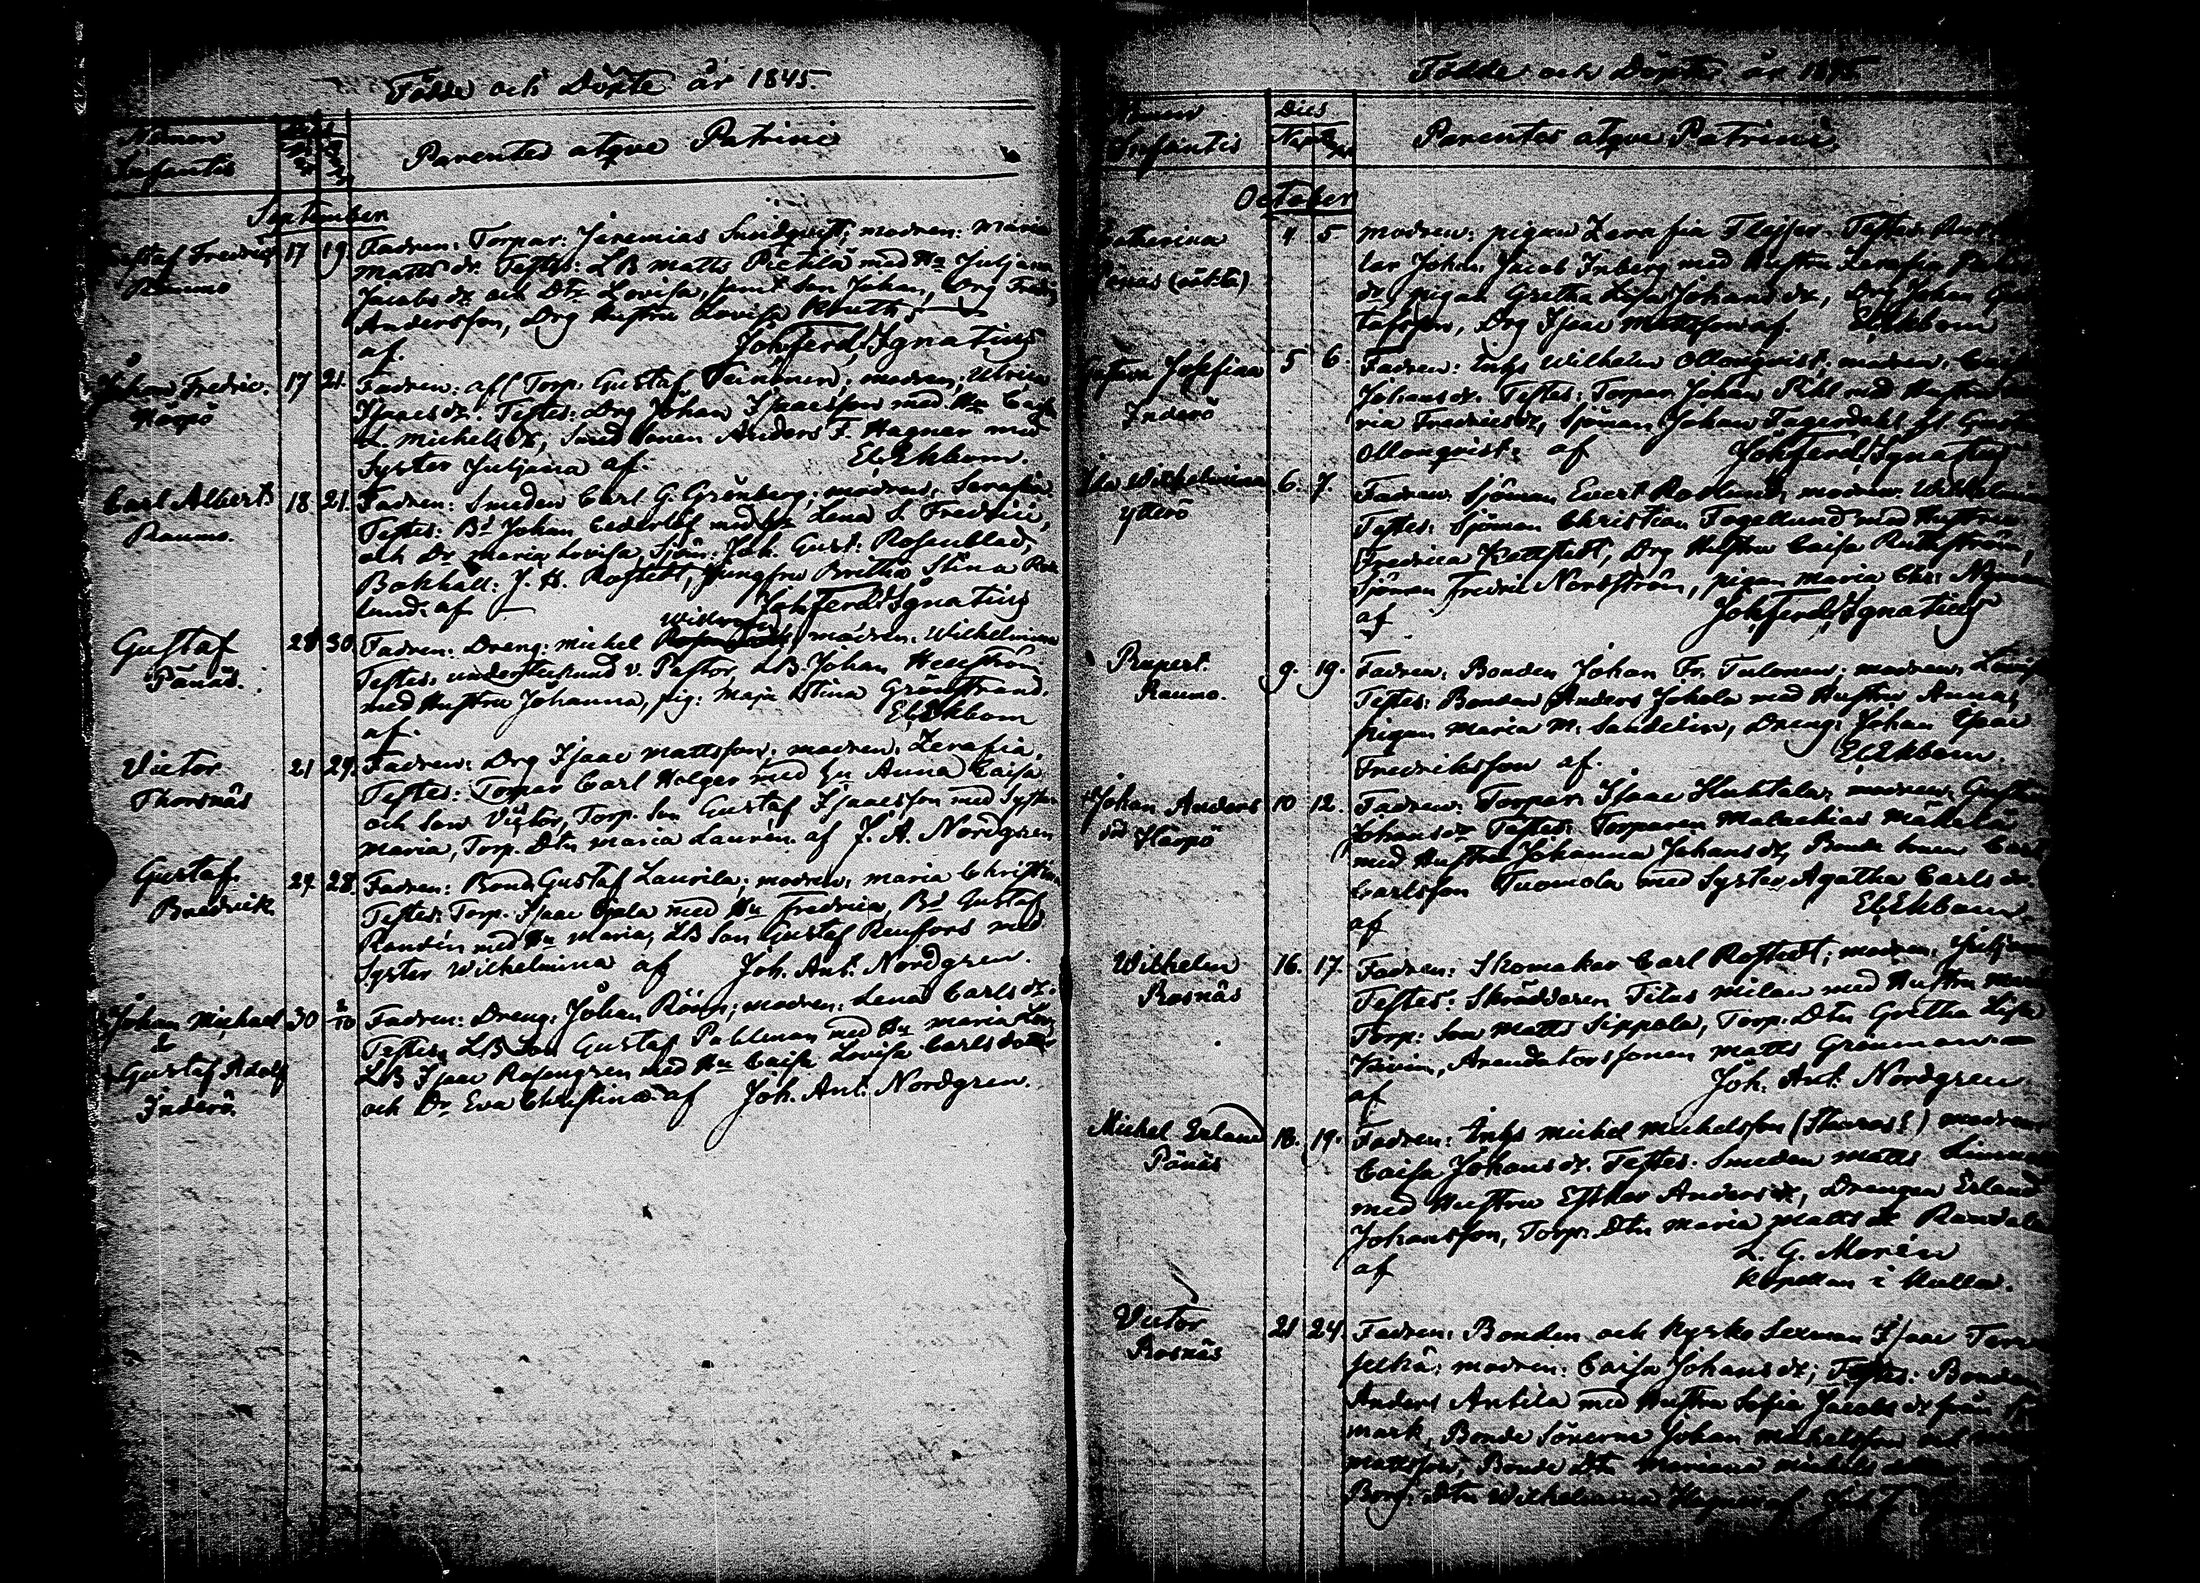 Födde och Döpte år 1845.
Nomen
Infantis
Parentes atque Patrini
September
Gustaf Fredric 17 19 Fadren: Torpar: Jeremias Sundqvist; modren: Maria
Raumo
Matts dr. Testes: LB Matts Pietilä med Hu Juljana
Jacobs dr och Dtr Lovisa, samt son Johan, Drg Fredr
Andersson, Drg Hustru Lovisa
af. Joh Ferd: Ignatius
Johan Fredric. 17 21. Fadren: afl Torp: Gustaf; modren: Ulrica
Isaacs dr. Testes: Drg Johan Isaacsson med Hu Caisa
L. Michels dr, Smed sonen Anders F. Hagner med
Syster Juljana af. El: Ekbom.
Carl Albert 18 21. Fadren: Smeden Carl G. Grönberg; modren: Serafia
Raumo.
Testes: Bd Johan Cederlöf med Hu Lena S. Fredrici,
och Dr Maria Lovisa, Sjöm: Joh. Gust: Rosenblad,
Bokhall: J. H. Rostedt, Jungfru Britha Stina
lund: af Joh Ferd: Ignatius
Gustaf 28 30 Fadren: Dreng: Michel; modren: Wilhelmina
Pänäs.
Testes: undertecknad v. Pastor, LB Johan
med Hustru Johanna, pig: Maja Stina Grönstrand.
af. El: Ekbom
Victor 21 29. Fadren: Drg Isaac Mattsson; modren: Zerafia,
Thorsnäs
Testes: Torpar Carl Holger med Hu Anna Caisa
och Son Victor, Torp. Son Gustaf Isaacsson med Syster
Maria, Torp. Dtr Maria Laurén. af J. A. Nordgren
Gustaf 27. 28. Fadren: Bond: Gustaf Laurila; modren: Maria Christina
Bredvik.
Testes: Torp. Isaac Ojala med Hu Fredrica, Bd Gustaf
Randén med Hu Maria, LB Son Gustaf Renfors med
Syster Wilhelmina af Joh. Ant: Nordgren.
Johan Michael 30 2/10 Fadren: Dreng: Johan Rönn; modren: Lena Carls dr.
&
Gustaf Adolf
Inderö.
Testes: LB Son Gustaf Pahlman med Hu Maria
LB Isaac Rosengren med Hu Caisa Lovisa Carlsdotter
och Dr Eva Christina af Joh. Ant: Nordgren.
Födde och Döpte år 1845
Nomen
Infantis
Dies
Parentes atque Patrini.
October
Catharina 4 5. modren: pigan Zerafia. Testes:
Pänäs (oäkta)
lar Johan Jacob Inberg med Hustru Serafia
dr, pigan Gretha Lisa Johans dr, Drg Johan
tafsson, Drg Isaac Mattsson af. El: Ekbom
Gustava Josefina 5 6. Fadren: Inhs Wilhelm Ollonqvist; modren:
Inderö
Johans dr. Testes: Torpar Johan Pihl med Hustru
ria Fredrics dr, Sjöman Johan Fagerdahl, Gusta
Ollonqvist: af Joh Ferd: Ignatius
Wilhelmina 6. 7. Fadren: Sjöman Evert Roslund; modren: Wilhelmina
ytterö
Testes: Sjöman Christian Fogellund med Hustru
Fredrica Kettstedt, Drg Hustru Caisa
Sjöman Fredric Nordström, pigan Maria Chr: Nyman
af Joh Ferd: Ignatius
Rupert 9. 19. Fadren: Bonden Johan Fr. Tulonen; modren: Lovisa
Raumo.
Testes: Bonden Anders Jokela med Hustru Anna,
pigan Maria M. Sandelin, Dreng: Johan Isaac
Fredriksson af. El: Ekbom.
Johan Anders 10 12. Fadren: Torpar: Isaac Huhtala; modren:
Johans dr Testes: Torparen Malachias Mäkelä
med Hustru Johanna Johans dr, Bonde sonen Carl
Carlsson Tuomola med Syster Agatha Carls dr.
af El: Ekbom.
Wilhelm 16. 17. Fadren: Skomakar Carl Rostedt; modren: Juljana
Rosnäs
Testes: Skräddaren Titus Milan med Hustru
Torp: Son Matts Sippola, Torp. Dtr Gretha Lisa
Kivin, Arendatorssonen Matts Grönman
af Joh. Ant: Nordgren
Michel Erland 18. 19. Fadren: Inhs Michel Michelsson modren
Pänäs
Caisa Johans dr. Testes: Smeden Matts
med Hustru Esther Anders dr, Drengen Erland
Johansson, Torp: Dtr Maria Matts dr Randala
af L. G. Morén
Kapellan i Kulla.
Victor 21 24. Fadren: Bonden och Kyrko Sexman Isaac
Rosnäs
modren: Caisa Johans dr; Testes: Bonden
Anders Antila med Hustru Sofia Jacobs dr från
mark, Bonde Sönerna Johan Michelsson och
Mattsson, Bonde Dtr Mariana Michels
Dtr Wilhelmina Hagner af